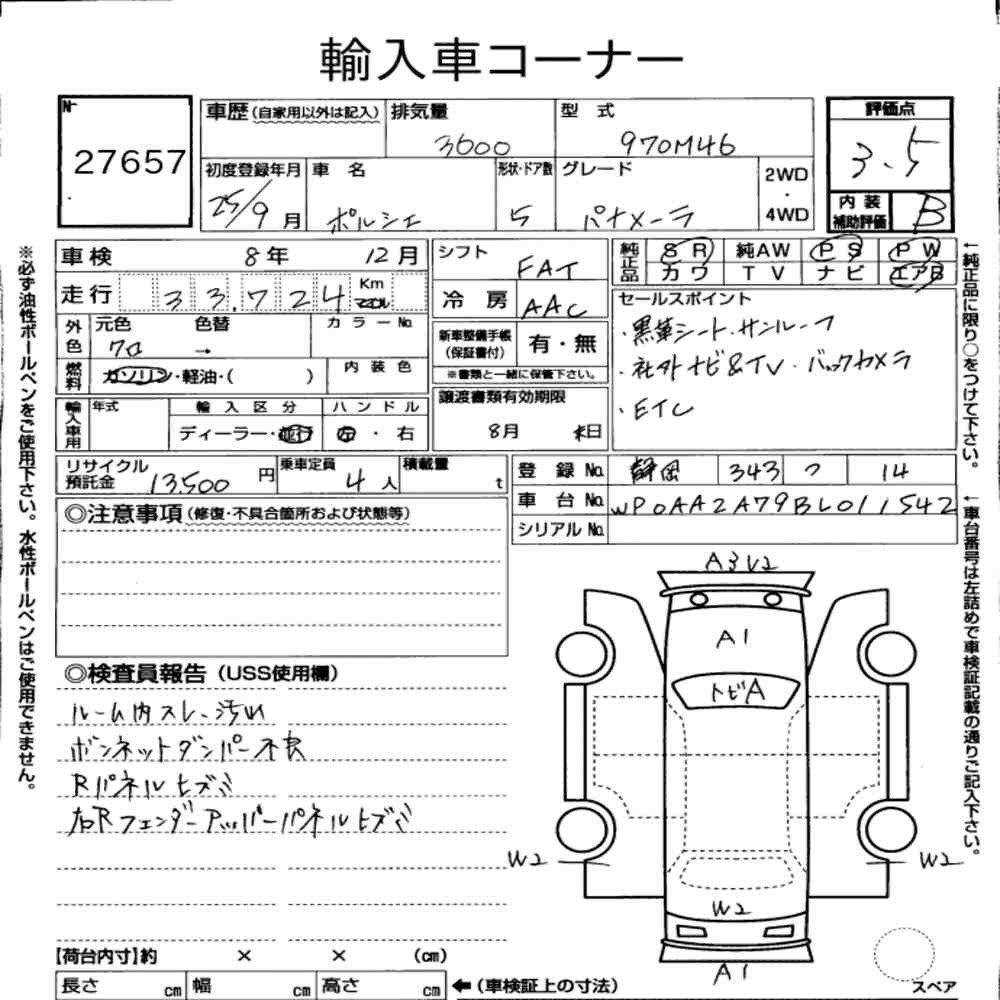 輸入車コーナー
№
27657
車歴(自家用以外は記入)
排気量
3600
型 式
970M46
評価点
3.5
初度登録年月
25/9月
車 名
ポルシェ
形状・ドア数
5
グレード
パナメーラ
2WD
・
4WD
内 装
補助評価
B
車検 8年 12月
走行 33,724 Km マイル
外色
元色 色替
クロ →
カラーNo.
燃料
ガソリン・軽油・( )
内 装 色
輸入車用
年式
輸 入 区 分
ディーラー・並行
ハ ン ド ル
左 ・ 右
シフト
FAT
冷 房
AAC
新車整備手帳
(保証書付)
有・無
※書類と一緒に保管下さい。
譲渡書類有効期限
8月 末日
純正品
SR 純AW PS PW
カワ TV ナビ エアB
セールスポイント
・黒革シート・サンルーフ
・社外ナビ&TV・バックカメラ
・ETC
リサイクル
預託金
13,500円
乗車定員
4人
積載量
t
登 録 No. 静岡 343 フ 14
車 台 No. WP0AA2A79BL011542
シリアル No.
◎注意事項(修復・不具合箇所および状態等)
◎検査員報告(USS使用欄)
ルーム内スレ、汚れ
ボンネットダンパー不良
Rパネルヒズミ
右Rフェンダーアッパーパネルヒズミ
A3V2
A1
トビA
W2
W2
W2
A1
スペア
【荷台内寸】約 × × (cm)
長さ cm 幅 cm 高さ cm
←(車検証上の寸法)
※必ず油性ボールペンをご使用下さい。水性ボールペンはご使用できません。
←純正品に限り○をつけて下さい。
←車台番号は左詰めで車検証記載の通りご記入下さい。